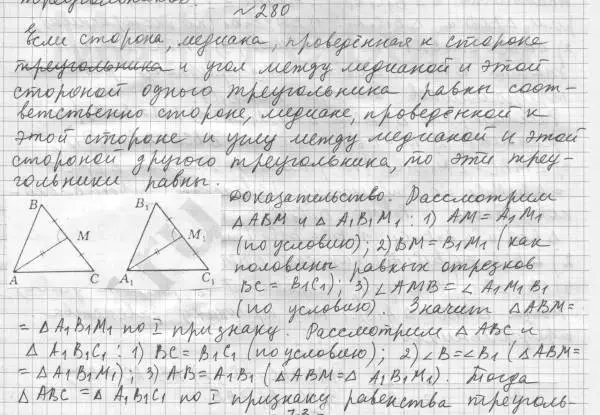 №280
Если сторона, медиана, проведённая к стороне
треугольника и угол между медианой и этой
стороной одного треугольника равны соот-
ветственно стороне, медиане, проведённой к
этой стороне и углу между медианой и этой
стороной другого треугольника, то эти треу-
гольники равны.
B
M
A
C
B₁
M₁
A₁
C₁
Доказательство. Рассмотрим
△ABM и △A₁B₁M₁: 1) AM = A₁M₁
(по условию); 2) BM = B₁M₁ (как
половины равных отрезков
BC = B₁C₁); 3) ∠AMB = ∠A₁M₁B₁
(по условию). Значит △ABM =
= △A₁B₁M₁ по I признаку. Рассмотрим △ABC и
△A₁B₁C₁: 1) BC = B₁C₁ (по условию); 2) ∠B = ∠B₁ (△ABM =
= △A₁B₁M₁); 3) AB = A₁B₁ (△ABM = △A₁B₁M₁). Тогда
△ABC = △A₁B₁C₁ по I признаку равенства треуголь-